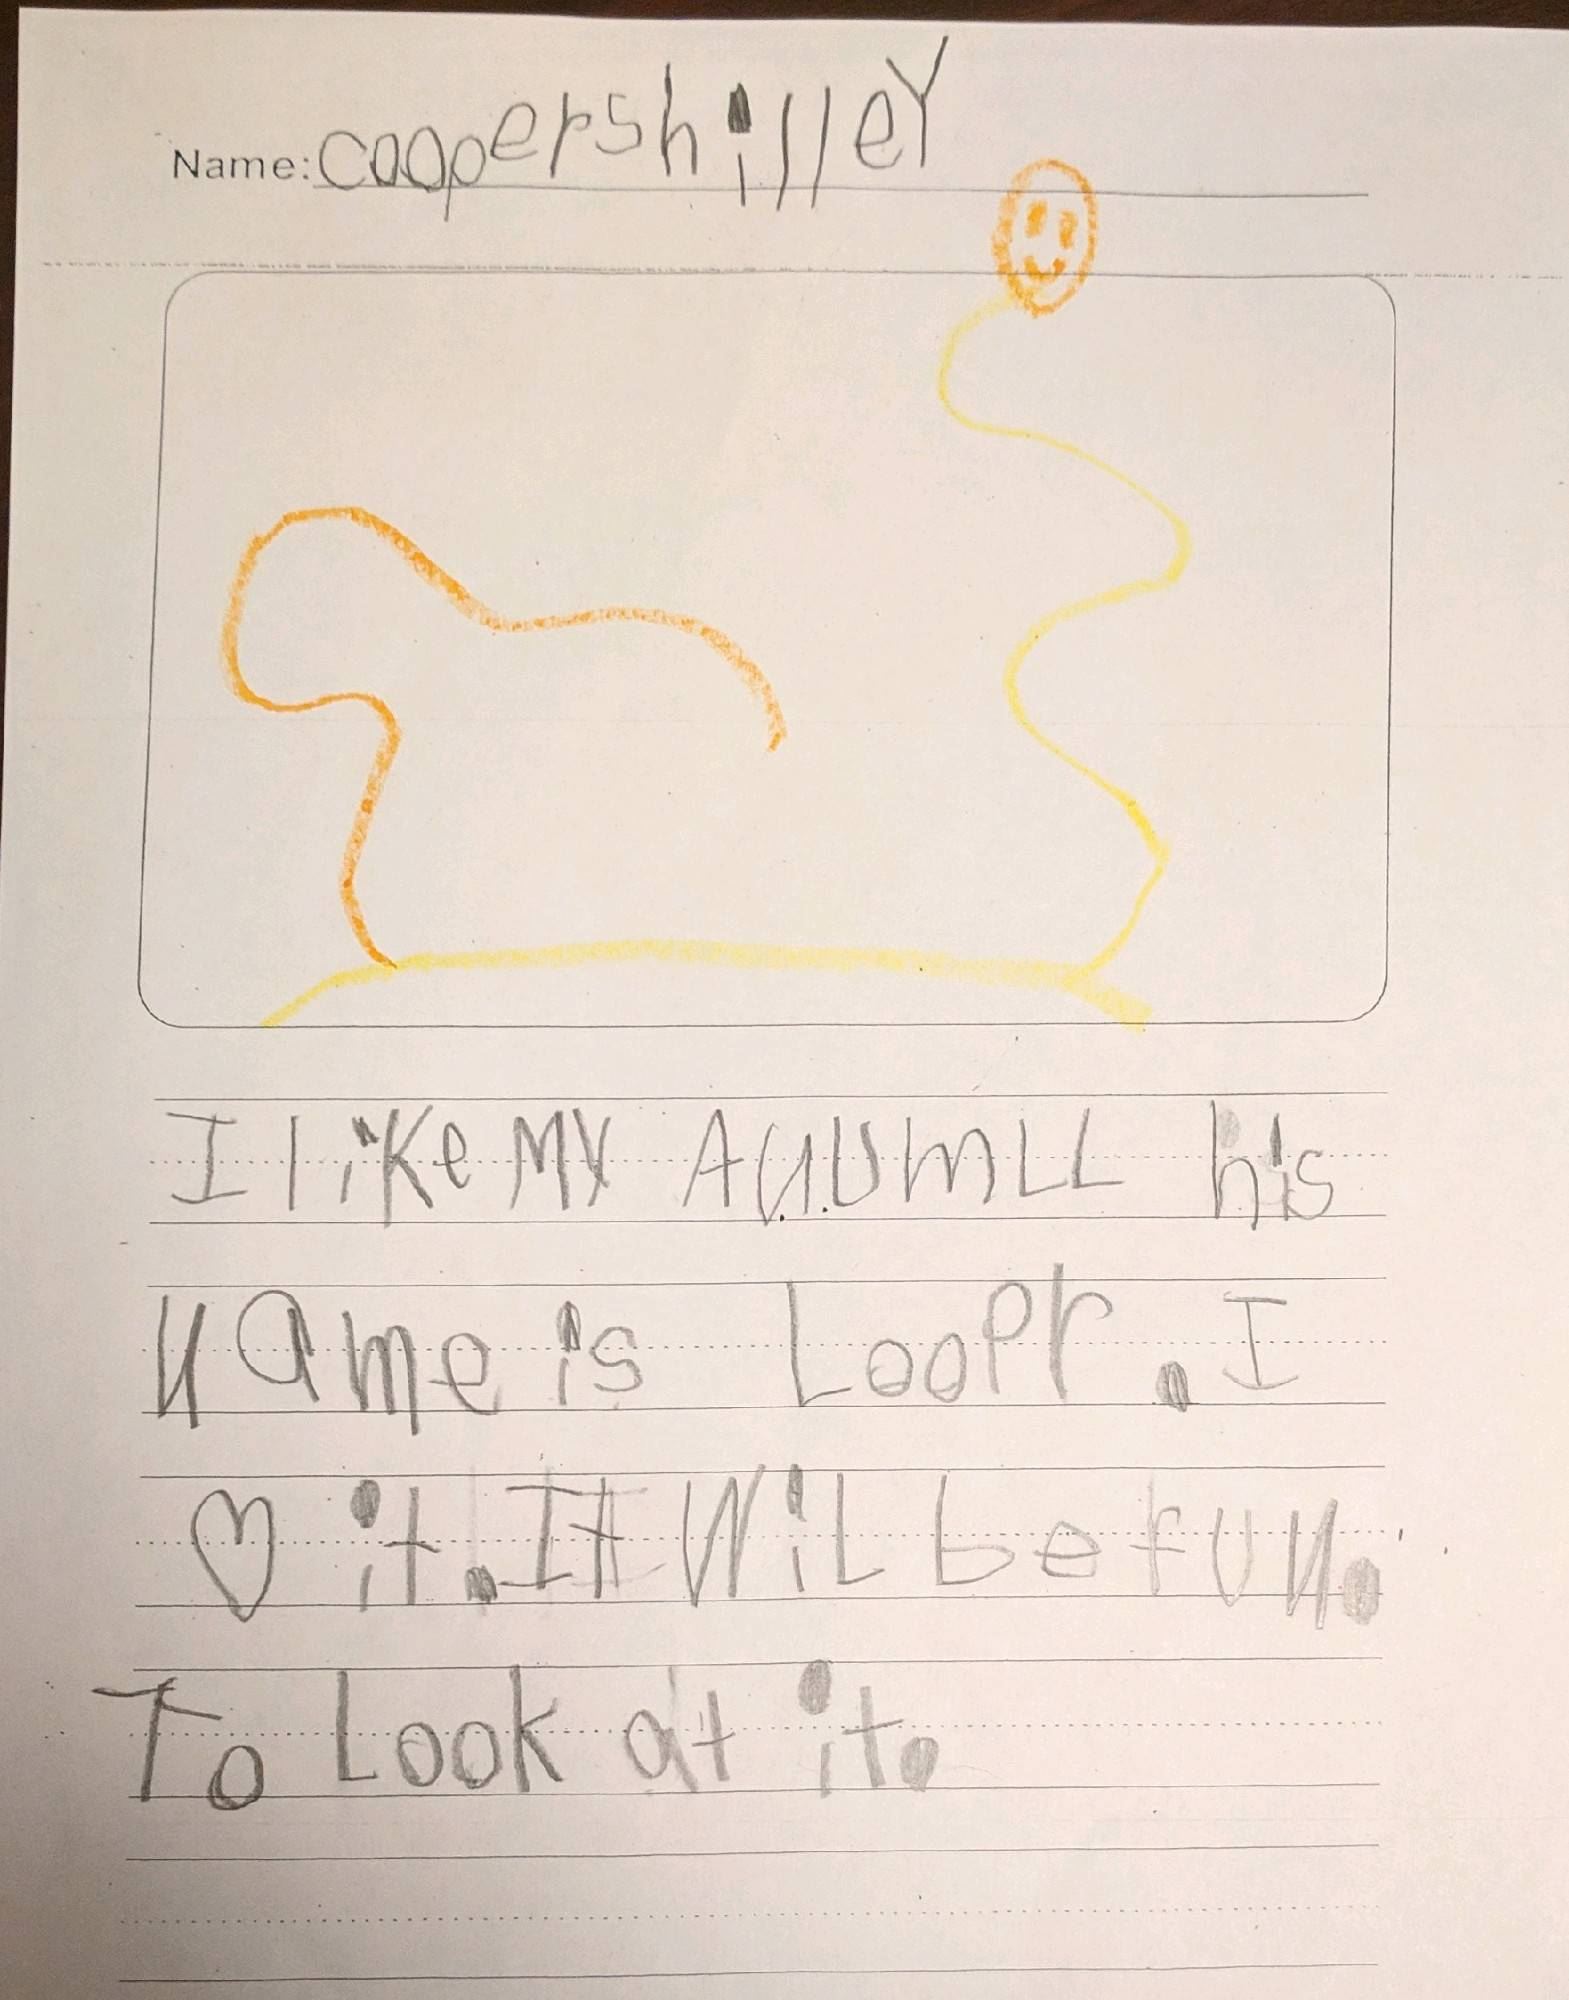 Name: coopershilleY
I like MY AUUmLL his
name is LooPr. I
♡ it. It Wil be fun.
To Look at it.